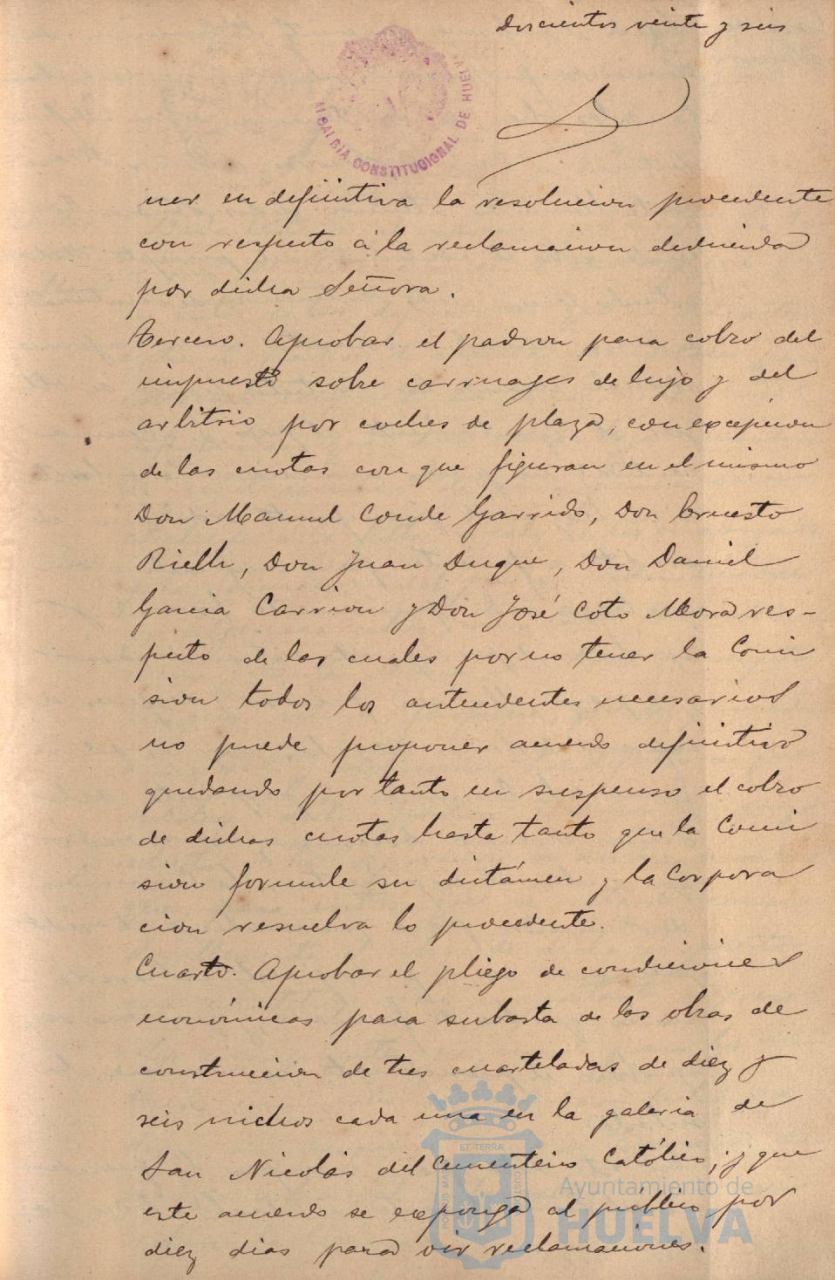 Doscientos veinte y seis
ALCALDIA CONSTITUCIONAL DE HUELVA
ner en definitiva la resolucion procedente
con respecto á la reclamacion deducida
por dicha Señora.
Tercero. Aprobar el padron para cobro del
impuesto sobre carruages de lujo y del
arbitrio por coches de plaza, con excepcion
de las cuotas con que figuran en el mismo
Don Manuel Conde Garrido, Don Ernesto
Don Juan Duque, Don Daniel
Garcia Carrion y Don José Coto Mora res-
pecto de las cuales por no tener la Comi
sion todos los antecedentes necesarios
no puede proponer acuerdo definitivo
quedando por tanto en suspenso el cobro
de dichas cuotas hasta tanto que la Comi
sion formule su dictámen y la Corpora
cion resuelva lo procedente.
Cuarto. Aprobar el pliego de condiciones
económicas para subasta de las obras de
construccion de tres cuarteladas de diez y
seis nichos cada una en la galeria de
San Nicolás del Cementerio Católico; y que
este acuerdo se exponga al público por
diez dias para oir reclamaciones.
Ayuntamiento de
HUELVA